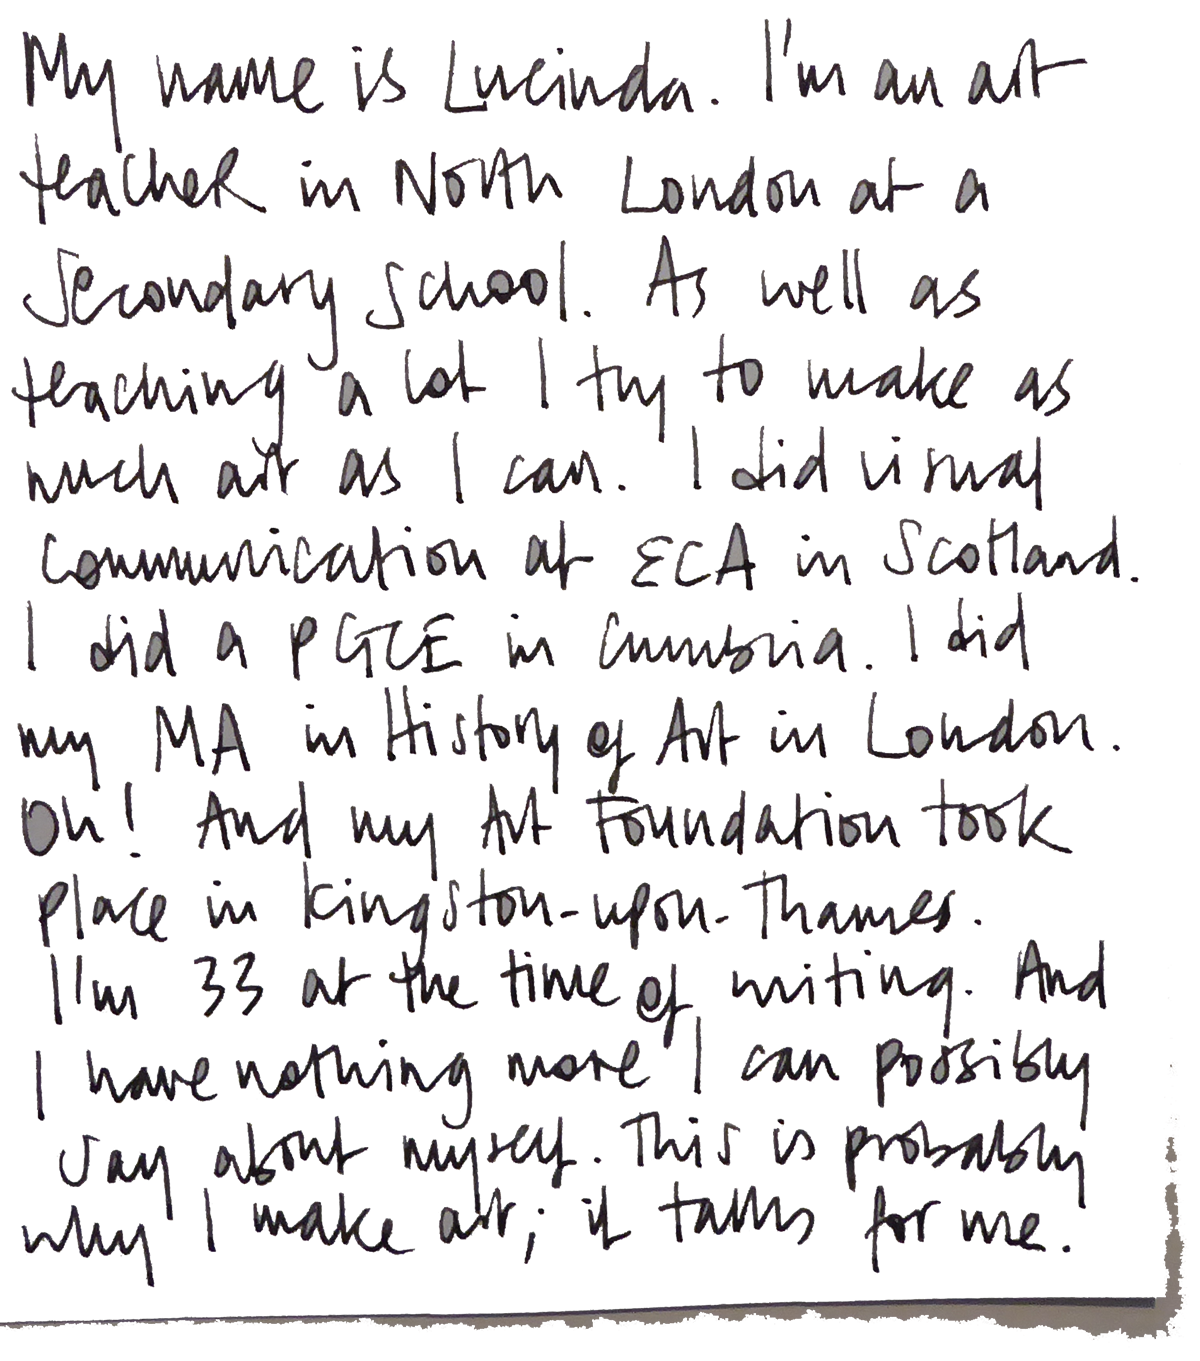 My name is Lucinda. I'm an art
teacher in North London at a
Secondary School. As well as
teaching a lot I try to make as
much art as I can. I did visual
communication at ECA in Scotland.
I did a PGCE in Cumbria. I did
my MA in History of Art in London.
Oh! And my Art Foundation took
place in Kingston-upon-Thames.
I'm 33 at the time of writing. And
I have nothing more I can possibly
say about myself. This is probably
why I make art; it talks for me.